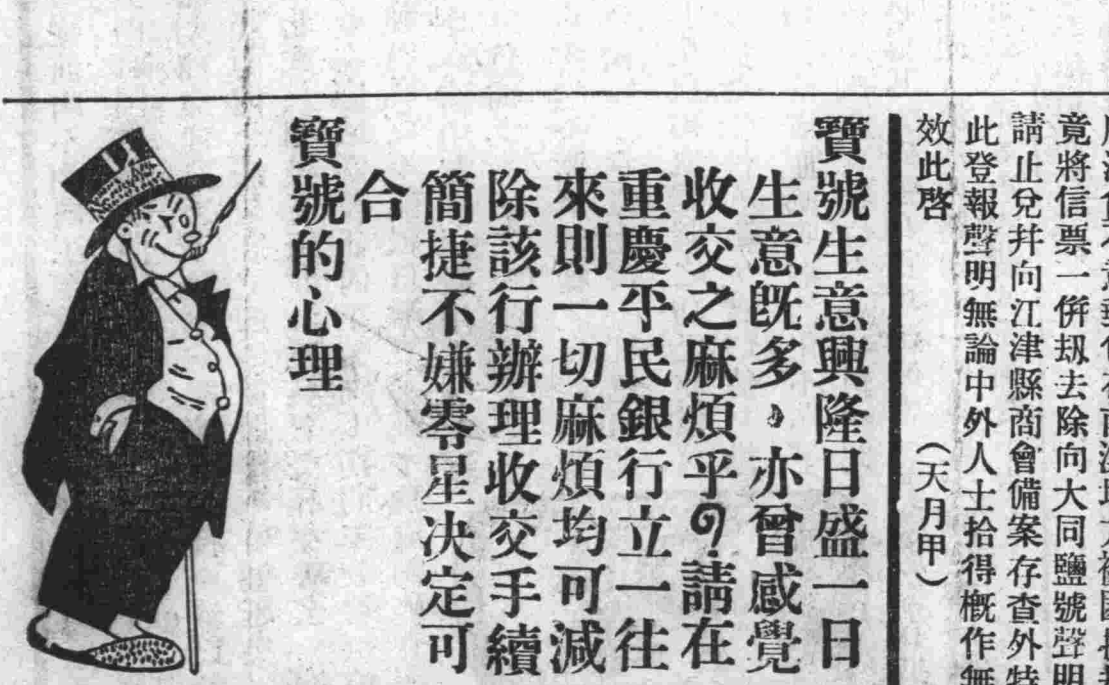 竟將信票一併刼去除向大同鹽號聲明
請止兌幷向江津縣商會備案存查外特
此登報聲明無論中外人士拾得概作無
效此啓
(天月甲)
寶號生意興隆日盛一日
生意旣多、亦曾感覺
收交之麻煩乎?請在
重慶平民銀行立一往
來則一切麻煩均可減
除該行辦理收交手續
簡捷不嫌零星決定可
合
寶號的心理